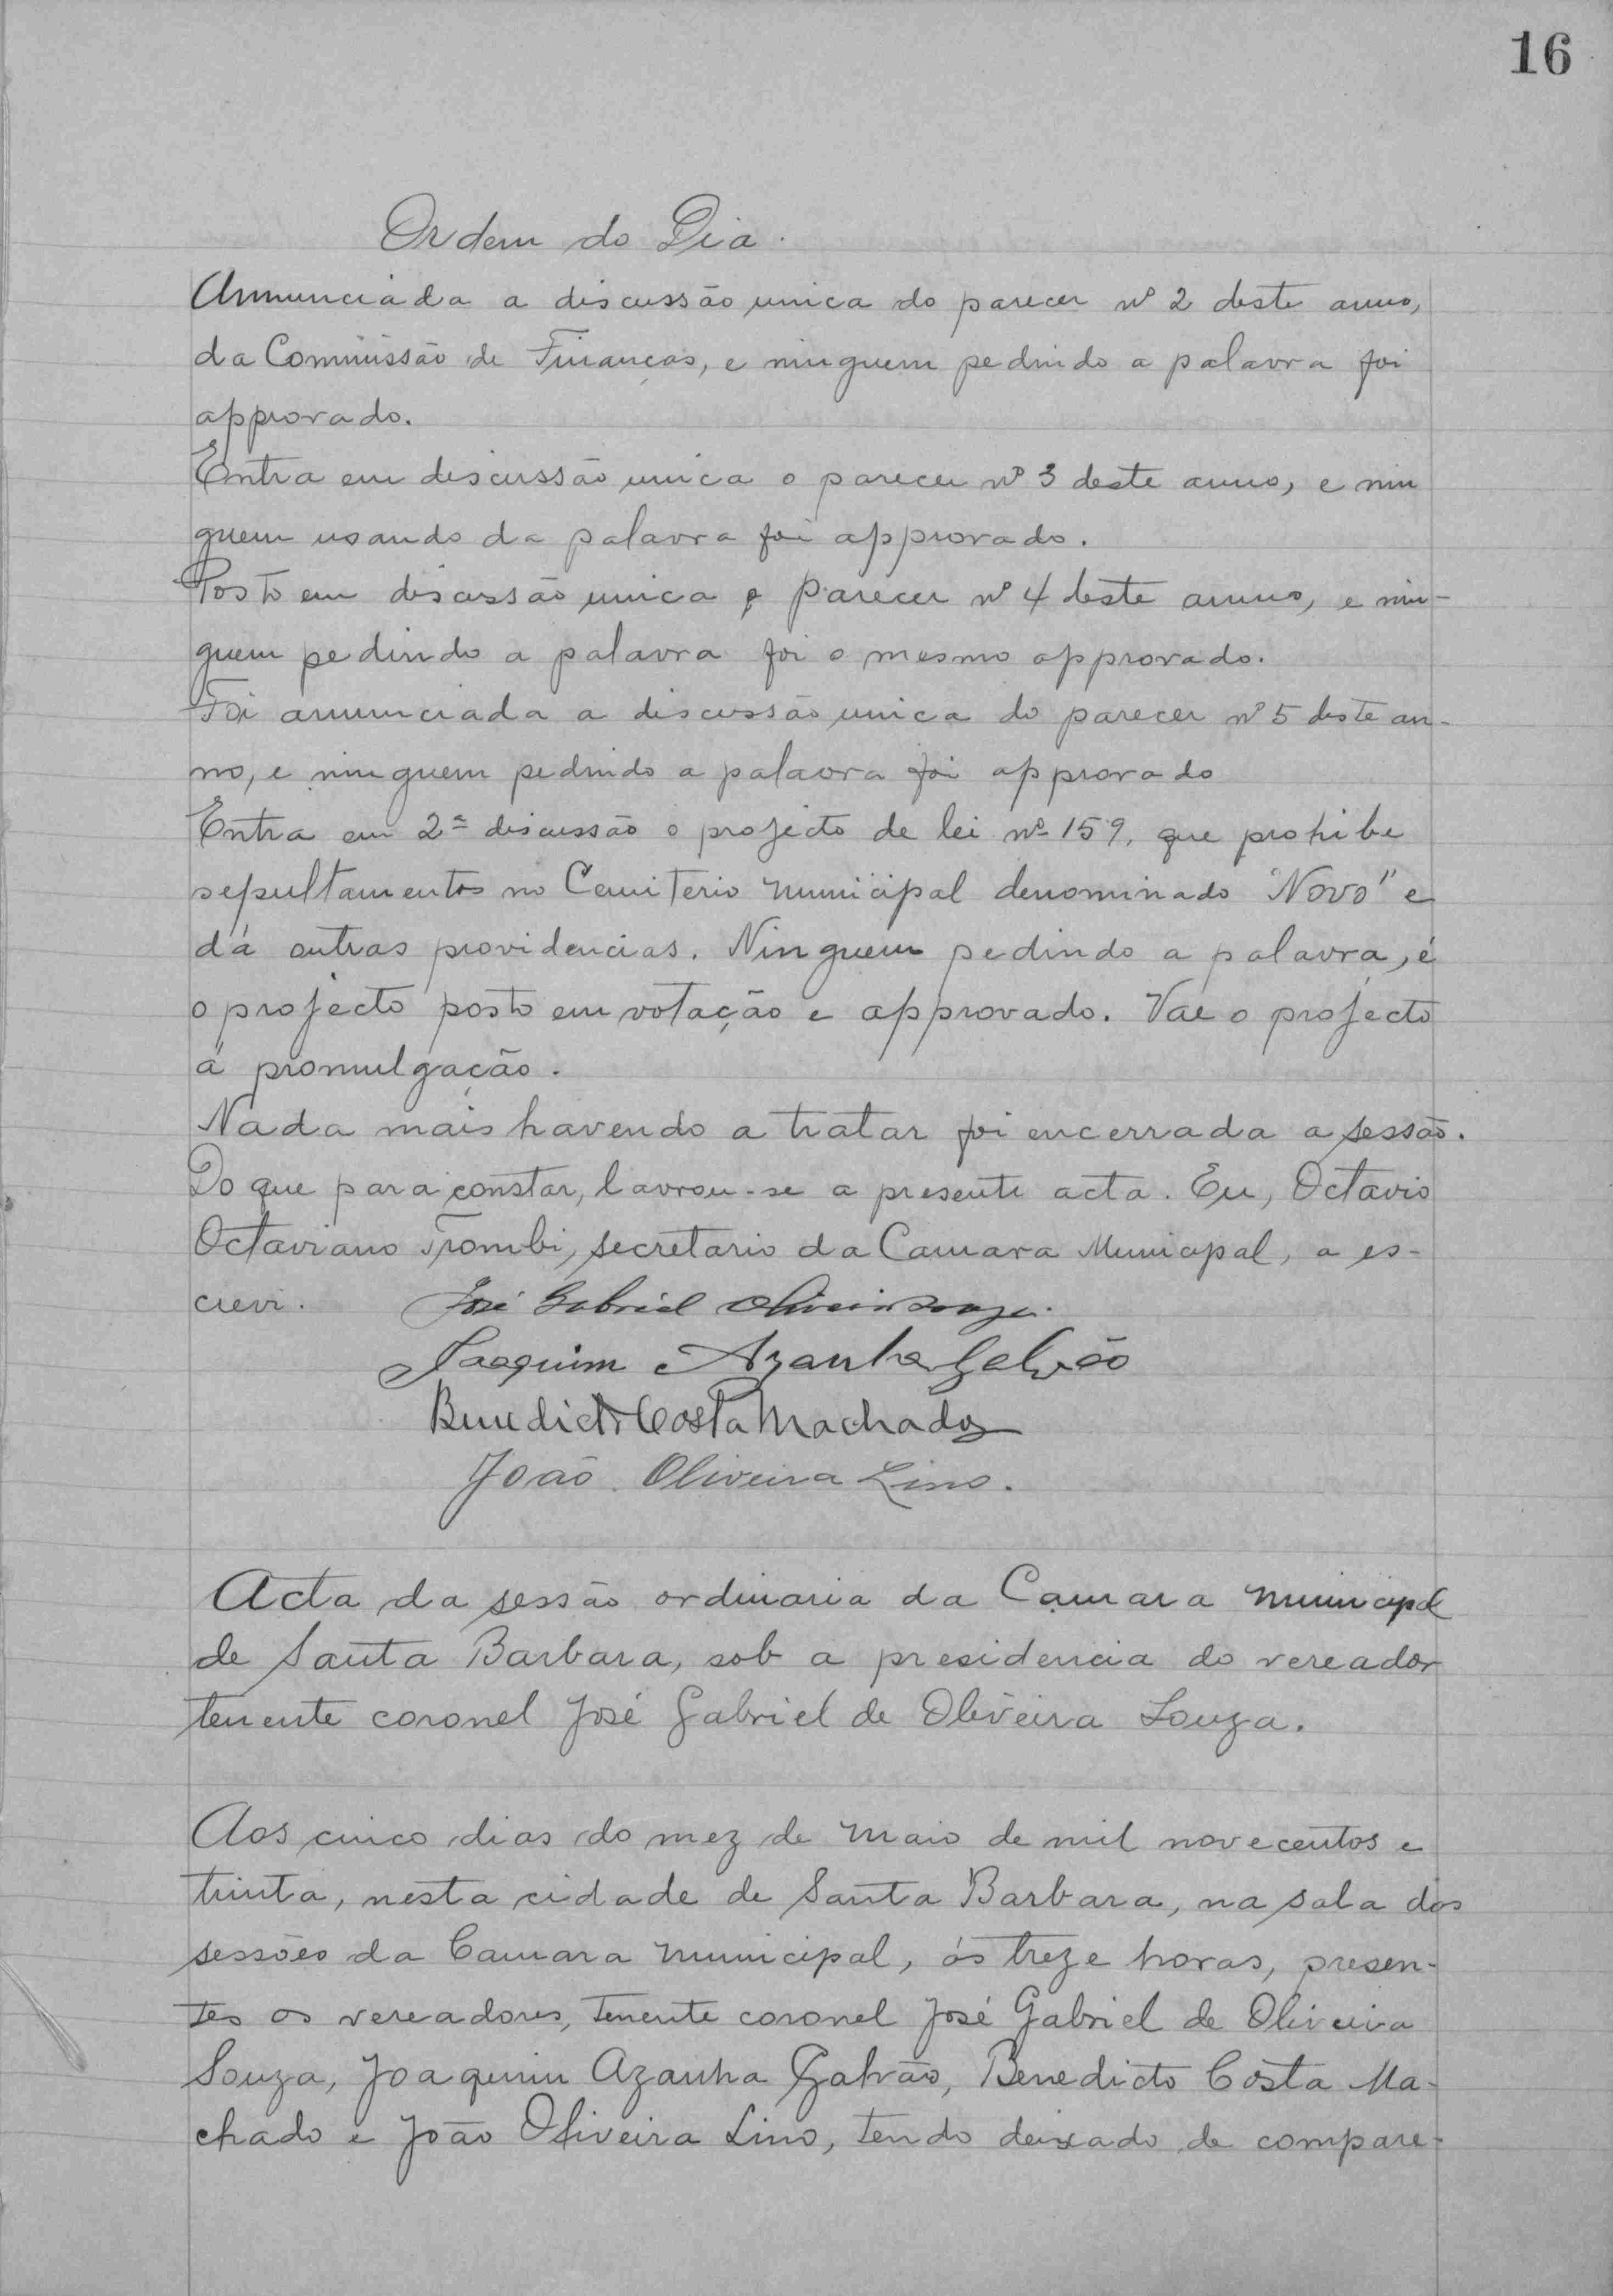 16
Ordem do Dia.
Annunciada a discussão unica do parecer nº 2 deste anno,
da Commissão de Finanças, e ninguem pedindo a palavra foi
approvado.
Entra em discussão unica o parecer nº 3 deste anno, e nin
guem usando da palavra foi approvado.
Posto em discussão unica o parecer nº 4 deste anno, e nin-
guem pedindo a palavra foi o mesmo approvado.
Foi annunciada a discussão unica do parecer nº 5 deste an-
no, e ninguem pedindo a palavra foi approvado
Entra em 2ª discussão o projecto de lei nº 159, que prohibe
sepultamentos no Cemiterio Municipal denominado "Novo" e
dá outras providencias. Ninguem pedindo a palavra, é
o projecto posto em votação e approvado. Vae o projecto
á promulgação.
Nada mais havendo a tratar foi encerrada a sessão.
Do que para constar, lavrou-se a presente acta. Eu, Octavio
Octaviano Trombi, secretario da Camara Municipal, a es-
crevi. José Gabriel Oliveira Souza.
Joaquim Azanha Galvão
Benedicto Costa Machado
João Oliveira Lino.
Acta da sessão ordinaria da Camara Municipal
de Santa Barbara, sob a presidencia do vereador
tenente coronel José Gabriel de Oliveira Souza.
Aos cinco dias do mez de Maio de mil novecentos e
trinta, nesta cidade de Santa Barbara, na sala das
sessões da Camara Municipal, ás treze horas, presen-
tes os vereadores, tenente coronel José Gabriel de Oliveira
Souza, Joaquim Azanha Galvão, Benedicto Costa Ma-
chado e João Oliveira Lino, tendo deixado de compare-